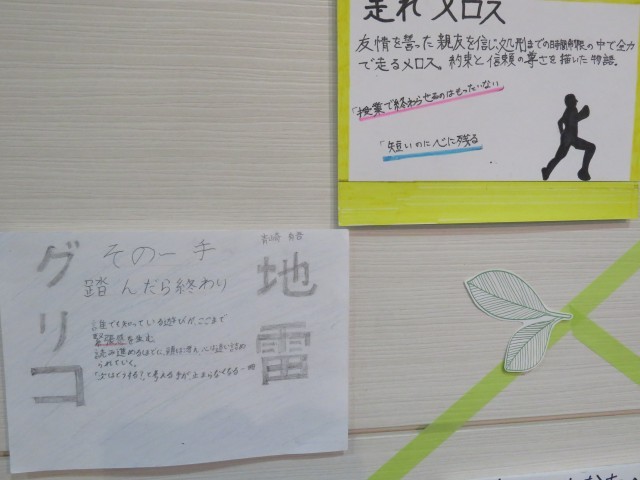 走れメロス
友情を誓った親友を信じ処刑までの時間制限の中で全力
で走るメロス。約束と信頼の尊さを描いた物語。
「授業で終わらせるのはもったいない
「短いのに心に残る
青崎 有吾
地雷
グリコ
その一手
踏んだら終わり
誰でも知っている遊びが、ここまで
緊張感を生む。
読み進めるほどに、頭は冴え、心は追い詰め
られていく。
「次はどうする?」と考える手が止まらなくなる一冊